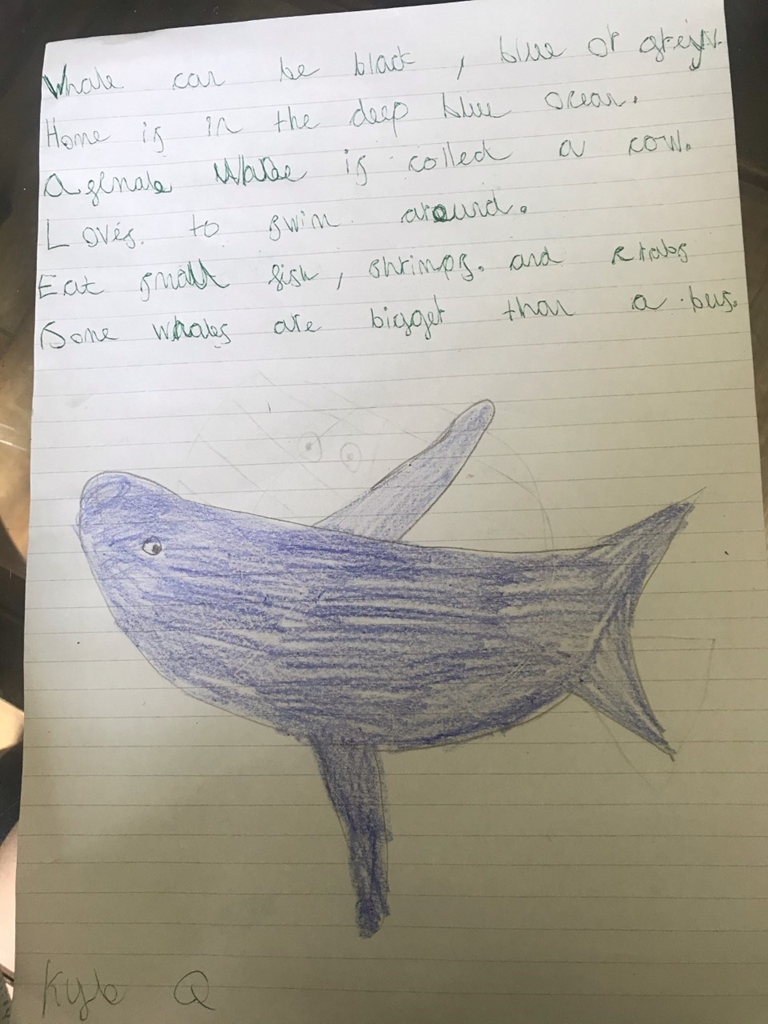 Whale can be black, blue or grey.
Home is in the deep blue ocean.
A female Whale is called a cow.
Loves. to swim around.
Eat small fish, shrimps. and crabs
Some whales are bigger than a bus.
Kyle Q